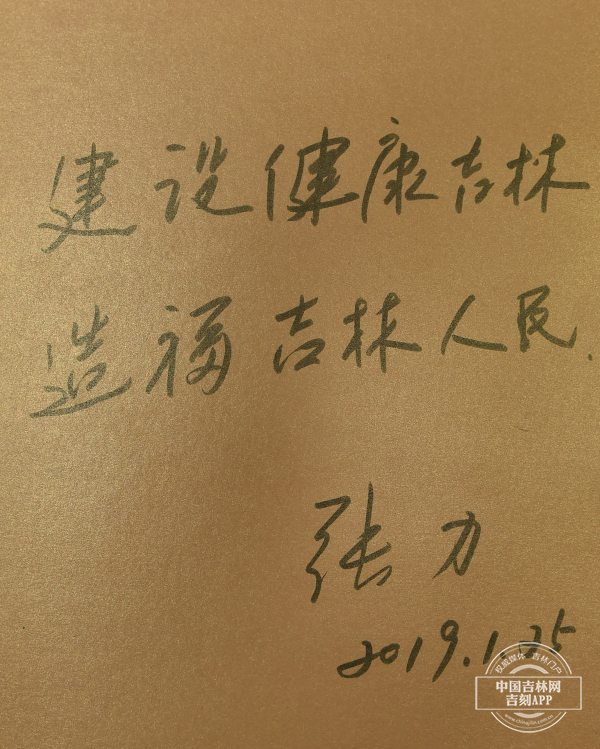 建设健康吉林
造福吉林人民.
张力
2019.1.25
权威媒体 吉林门户
中国吉林网
吉刻APP
www.chinajilin.com.cn